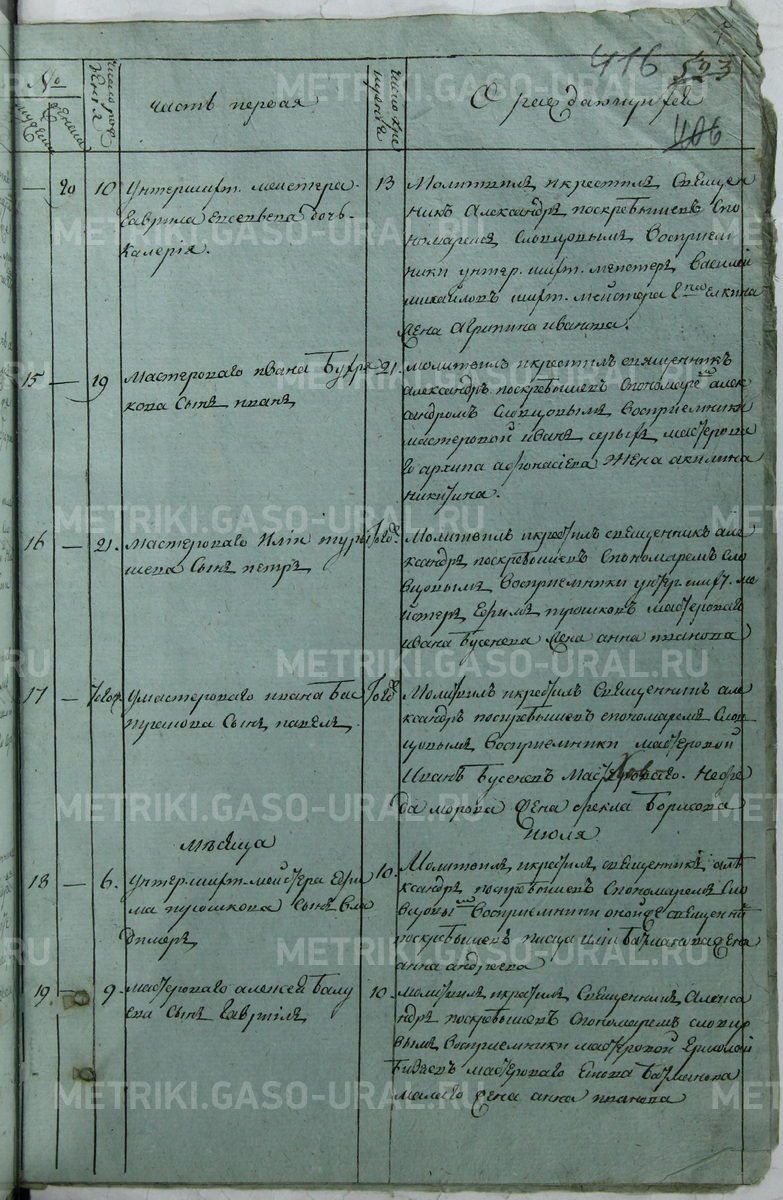 416 523
406
№
мужеска
женска
число рождения
часть первая
число крещения
О раждающихся
— 20 10 Унтершихт. мейстера
Гаврила Евсевьева дочь
Калерія.
13 Молитвилъ икрестилъ Священ
никъ Александръ поскребышевъ Спо
номаремъ Словцовымъ Восприем
ники унтер. шихт. мейстеръ Василей
михайловъ шихт. мейстера Елкина
жена Агрипина иванова.
15 — 19 Мастероваго ивана
кова Сынъ иванъ
21. молитвилъ икрестилъ священникъ
александръ поскребышевъ Спономаремъ алек
сандромъ Словцовымъ Восприемники
мастеровой иванъ мастерова
го архипа афонасіева жена акилина
никитина.
16 — 21. Мастероваго Илии
шева Сынъ петръ
Тогож. Молитвилъ икрестилъ священникъ але
ксандръ поскребышевъ Спономаремъ сло
вцовымъ Восприемники унтер. шихт. ме
йстеръ Ефимъ пушковъ мастероваго
ивана бусенева жена анна иванова
17 — Тогож. Умастероваго ивана Бас
Сынъ павелъ
Тогож. Молитвилъ икрестилъ Священникъ але
ксандръ поскребышевъ спономаремъ Слов
цовымъ Восприемники мастеровой
Иванъ бусеневъ мастероваго. Нефе
да морова жена фекла Борисова
мѣсяца Июля
18 — 6. унтер. шихт. мейстера Ефи
ма пушкова Сынъ Вла
димеръ
10. Молитвилъ икрестилъ священникъ але
ксандръ поскребышевъ Спономаремъ Сло
вцовымъ Восприемники онойже священникъ
поскребышевъ писца иліи жена
анна андреева
19 — 9. мастероваго алексея Балу
ева Сынъ Гавріилъ
10. молитвилъ икрестилъ Священникъ Алекса
ндръ поскребышевъ Спономаремъ словцо
вымъ Восприемники мастеровой Ермолай
мастероваго
малаго жена анна иванова
METRIKI.GASO-URAL.RU